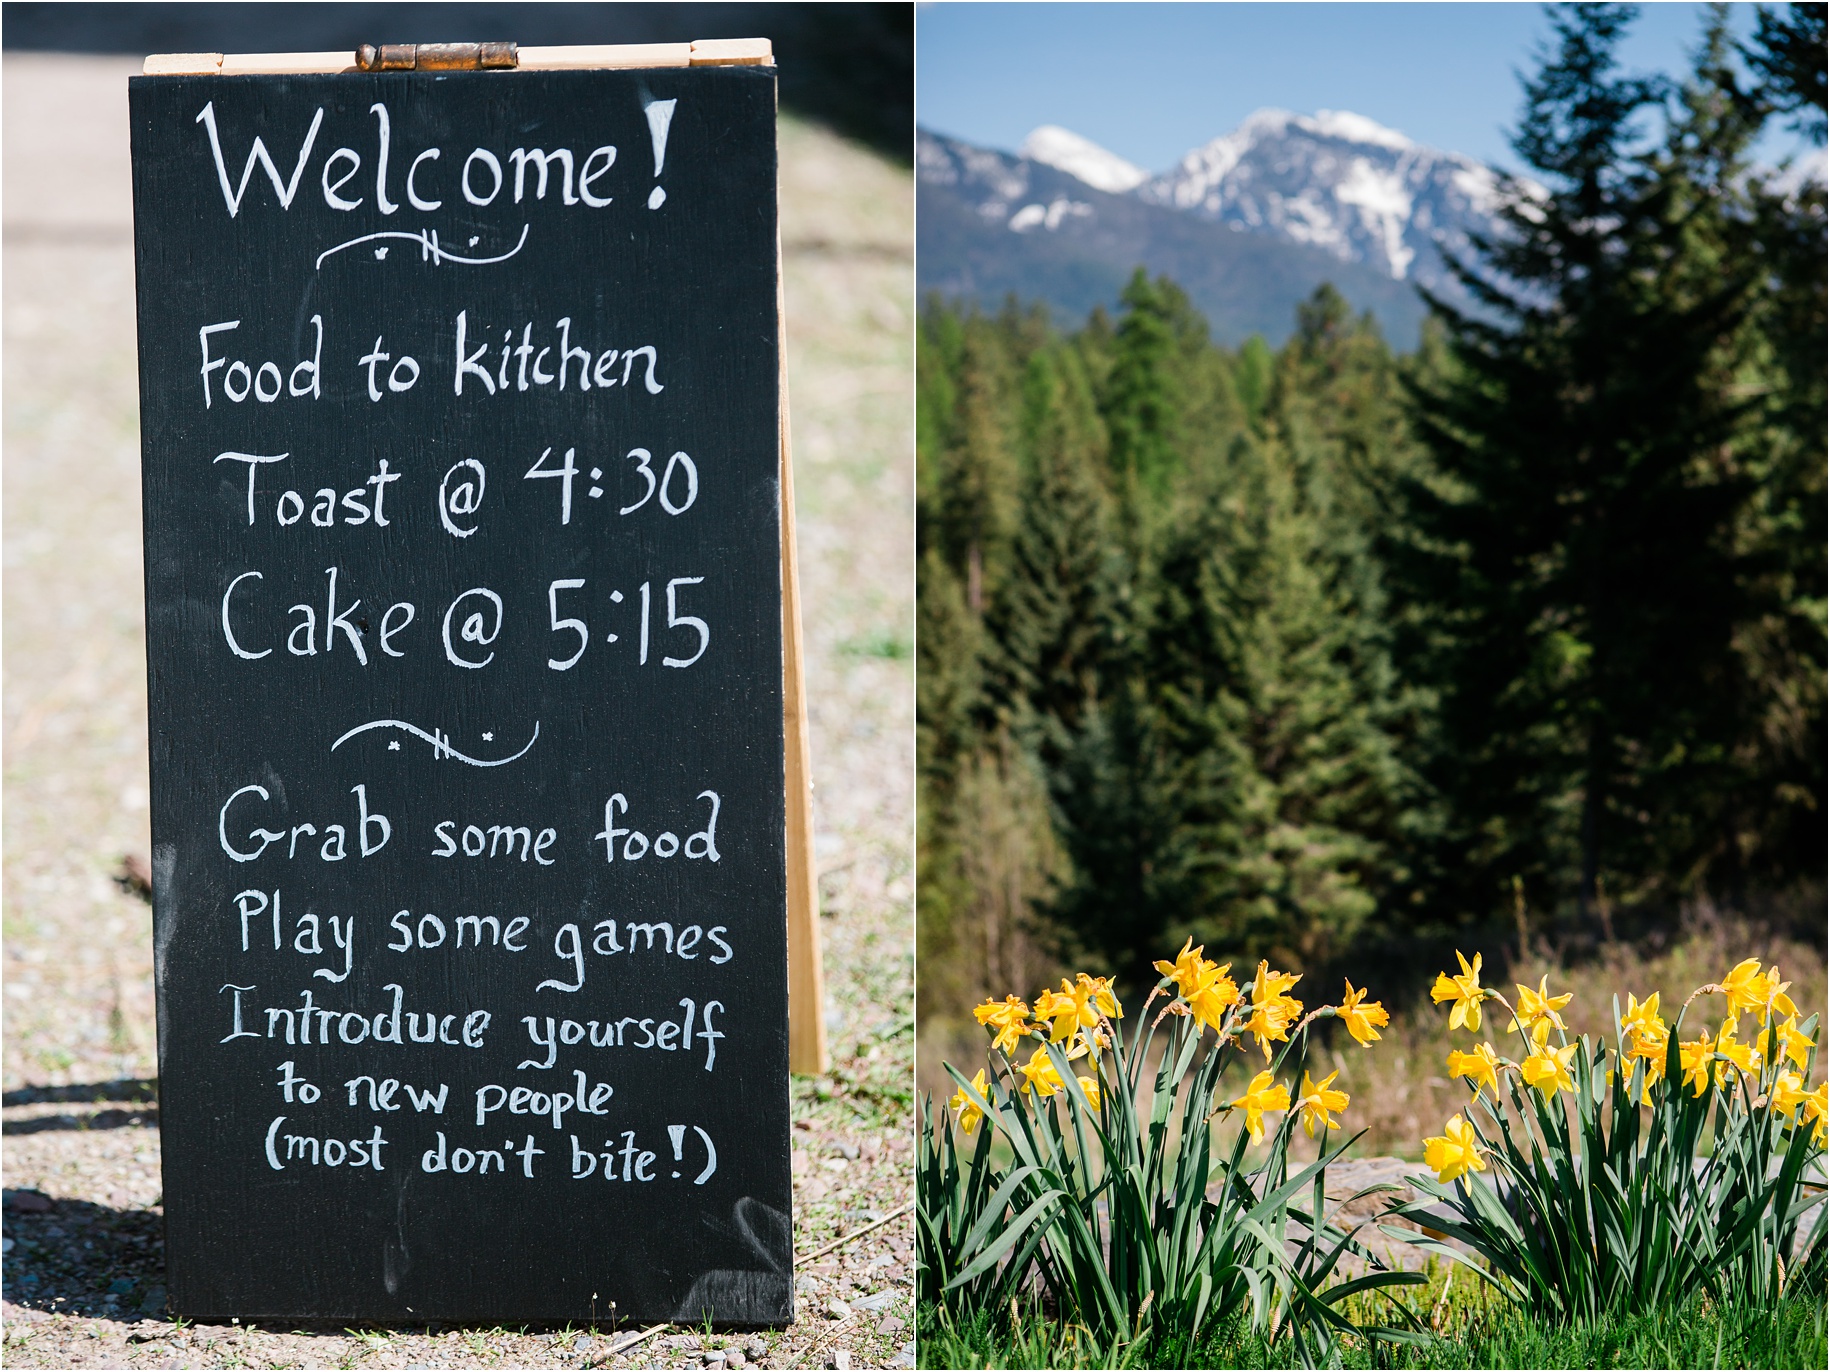 Welcome!
Food to kitchen
Toast @ 4:30
Cake @ 5:15
Grab some food
Play some games
Introduce yourself
to new people
(most don't bite!)